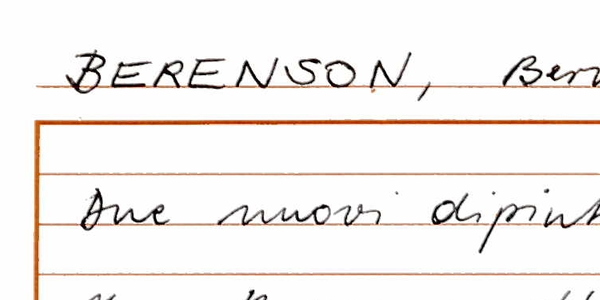 BERENSON, Ber
Due nuovi dipint